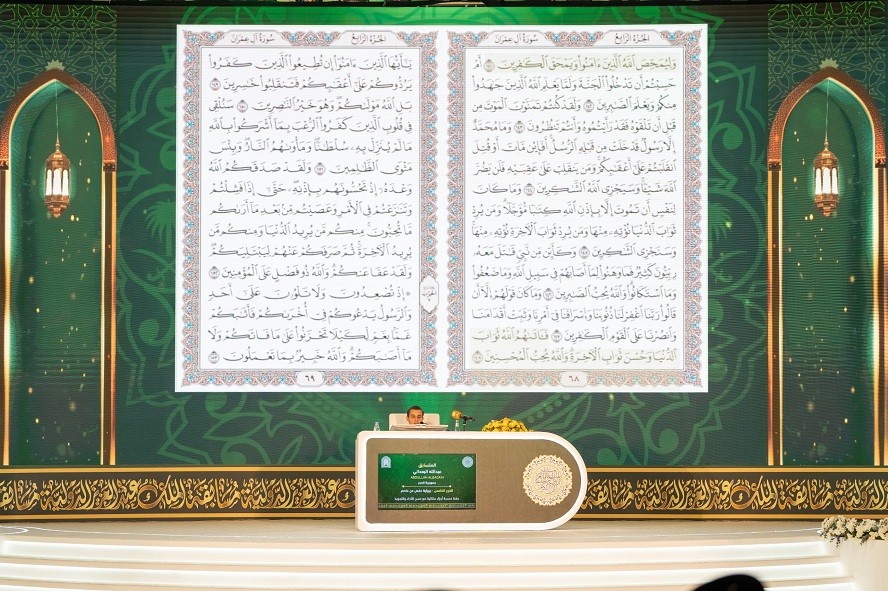 الجزء الرابع سورة آل عمران
وَلِيُمَحِّصَ ٱللَّهُ ٱلَّذِينَ ءَامَنُوا۟ وَيَمْحَقَ ٱلْكَٰفِرِينَ ١٤١ أَمْ
حَسِبْتُمْ أَن تَدْخُلُوا۟ ٱلْجَنَّةَ وَلَمَّا يَعْلَمِ ٱللَّهُ ٱلَّذِينَ جَٰهَدُوا۟
مِنكُمْ وَيَعْلَمَ ٱلصَّٰبِرِينَ ١٤٢ وَلَقَدْ كُنتُمْ تَمَنَّوْنَ ٱلْمَوْتَ مِن
قَبْلِ أَن تَلْقَوْهُ فَقَدْ رَأَيْتُمُوهُ وَأَنتُمْ تَنظُرُونَ ١٤٣ وَمَا مُحَمَّدٌ
إِلَّا رَسُولٌ قَدْ خَلَتْ مِن قَبْلِهِ ٱلرُّسُلُ أَفَإِي۟ن مَّاتَ أَوْ قُتِلَ
ٱنقَلَبْتُمْ عَلَىٰٓ أَعْقَٰبِكُمْ وَمَن يَنقَلِبْ عَلَىٰ عَقِبَيْهِ فَلَن يَضُرَّ
ٱللَّهَ شَيْـًٔا وَسَيَجْزِي ٱللَّهُ ٱلشَّٰكِرِينَ ١٤٤ وَمَا كَانَ
لِنَفْسٍ أَن تَمُوتَ إِلَّا بِإِذْنِ ٱللَّهِ كِتَٰبًا مُّؤَجَّلًا وَمَن يُرِدْ
ثَوَابَ ٱلدُّنْيَا نُؤْتِهِۦ مِنْهَا وَمَن يُرِدْ ثَوَابَ ٱلْءَاخِرَةِ نُؤْتِهِۦ مِنْهَا
وَسَنَجْزِي ٱلشَّٰكِرِينَ ١٤٥ وَكَأَيِّن مِّن نَّبِيٍّ قَٰتَلَ مَعَهُۥ
رِبِّيُّونَ كَثِيرٌ فَمَا وَهَنُوا۟ لِمَآ أَصَابَهُمْ فِي سَبِيلِ ٱللَّهِ وَمَا ضَعُفُوا۟
وَمَا ٱسْتَكَانُوا۟ وَٱللَّهُ يُحِبُّ ٱلصَّٰبِرِينَ ١٤٦ وَمَا كَانَ قَوْلَهُمْ إِلَّآ أَن
قَالُوا۟ رَبَّنَا ٱغْفِرْ لَنَا ذُنُوبَنَا وَإِسْرَافَنَا فِيٓ أَمْرِنَا وَثَبِّتْ أَقْدَامَنَا
وَٱنصُرْنَا عَلَى ٱلْقَوْمِ ٱلْكَٰفِرِينَ ١٤٧ فَـَٔاتَىٰهُمُ ٱللَّهُ ثَوَابَ
ٱلدُّنْيَا وَحُسْنَ ثَوَابِ ٱلْءَاخِرَةِ وَٱللَّهُ يُحِبُّ ٱلْمُحْسِنِينَ ١٤٨
٦٨
الجزء الرابع سورة آل عمران
يَٰٓأَيُّهَا ٱلَّذِينَ ءَامَنُوٓا۟ إِن تُطِيعُوا۟ ٱلَّذِينَ كَفَرُوا۟
يَرُدُّوكُمْ عَلَىٰٓ أَعْقَٰبِكُمْ فَتَنقَلِبُوا۟ خَٰسِرِينَ ١٤٩
بَلِ ٱللَّهُ مَوْلَىٰكُمْ وَهُوَ خَيْرُ ٱلنَّٰصِرِينَ ١٥٠ سَنُلْقِي
فِي قُلُوبِ ٱلَّذِينَ كَفَرُوا۟ ٱلرُّعْبَ بِمَآ أَشْرَكُوا۟ بِٱللَّهِ
مَا لَمْ يُنَزِّلْ بِهِۦ سُلْطَٰنًا وَمَأْوَىٰهُمُ ٱلنَّارُ وَبِئْسَ
مَثْوَى ٱلظَّٰلِمِينَ ١٥١ وَلَقَدْ صَدَقَكُمُ ٱللَّهُ
وَعْدَهُۥٓ إِذْ تَحُسُّونَهُم بِإِذْنِهِۦ حَتَّىٰٓ إِذَا فَشِلْتُمْ
وَتَنَٰزَعْتُمْ فِي ٱلْأَمْرِ وَعَصَيْتُم مِّنۢ بَعْدِ مَآ أَرَىٰكُم
مَّا تُحِبُّونَ مِنكُم مَّن يُرِيدُ ٱلدُّنْيَا وَمِنكُم مَّن
يُرِيدُ ٱلْءَاخِرَةَ ثُمَّ صَرَفَكُمْ عَنْهُمْ لِيَبْتَلِيَكُمْ
وَلَقَدْ عَفَا عَنكُمْ وَٱللَّهُ ذُو فَضْلٍ عَلَى ٱلْمُؤْمِنِينَ ١٥٢
۞ إِذْ تُصْعِدُونَ وَلَا تَلْوُۥنَ عَلَىٰٓ أَحَدٍ
وَٱلرَّسُولُ يَدْعُوكُمْ فِيٓ أُخْرَىٰكُمْ فَأَثَٰبَكُمْ
غَمًّۢا بِغَمٍّ لِّكَيْلَا تَحْزَنُوا۟ عَلَىٰ مَا فَاتَكُمْ وَلَا
مَآ أَصَٰبَكُمْ وَٱللَّهُ خَبِيرٌۢ بِمَا تَعْمَلُونَ ١٥٣
٦٩
المتسابق
عبدالله
ABDULLAH ALBADANI
الفرع الخامس - برواية حفص عن عاصم
حفظ خمسة أجزاء متتالية مع حسن الأداء والتجويد
مسابقة الملك عبدالعزيز الدولية
مسابقة الملك عبدالعزيز الدولية